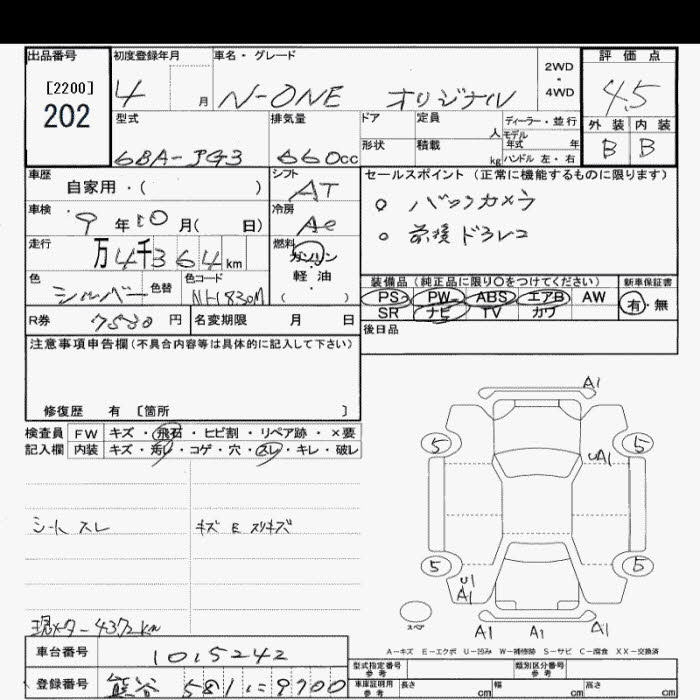 出品番号
[2200]
202
初度登録年月
4 月
車名・グレード
N-ONE オリジナル
2WD
・
4WD
評価点
4.5
外装 内装
B B
型式
6BA-JG3
排気量
660cc
ドア
定員
人
ディーラー・並行
モデル
年式 年
形状
積載
kg
ハンドル 左・右
車歴
自家用・( )
シフト
AT
車検
9年10月( 日)
冷房
AC
走行
万4千364km
燃料
ガソリン
軽・油
( )
色
シルバー
色替
色コード
NH830M
R券 7530円
名変期限 月 日
セールスポイント (正常に機能するものに限ります)
○ バックカメラ
○ 前後ドラレコ
装備品 (純正品に限り○をつけてください)
PS PW ABS エアB AW
SR ナビ TV カワ
新車保証書
有・無
後日品
注意事項申告欄(不具合内容等は具体的に記入して下さい)
修復歴 有 〔箇所 〕
検査員
記入欄
FW キズ・飛石・ヒビ割・リペア跡・×要
内装 キズ・汚レ・コゲ・穴・スレ・キレ・破レ
シート スレ
キズ E スリキズ
現メター 4372km
A1
5 5
UA1
5 5
U1
A1
A1 A1 A1
スペア
A-キズ E-エクボ U-凹み W-補修跡 S-サビ C-腐食 XX-交換済
車台番号 1015242
登録番号 熊谷 581 に 9700
型式指定番号
参考
類別区分番号
参考
車庫証明用
参考
長さ cm 幅 cm 高さ cm